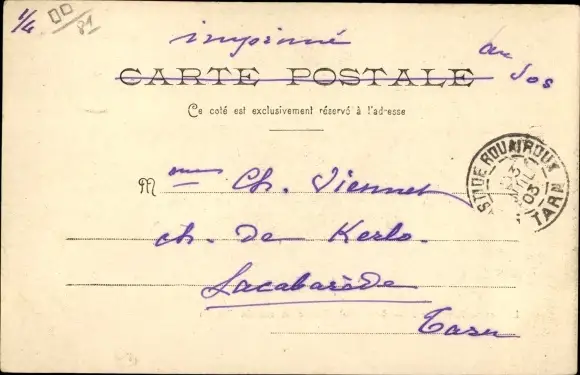 1/4
81
imprimé
au
dos
CARTE POSTALE
Ce coté est exclusivement réservé à l'adresse
Mme Ch. Viennet
ch. de Kerlo.
Lacabarède
Tarn
STIDE ROUAIROUX
13
03
TARN